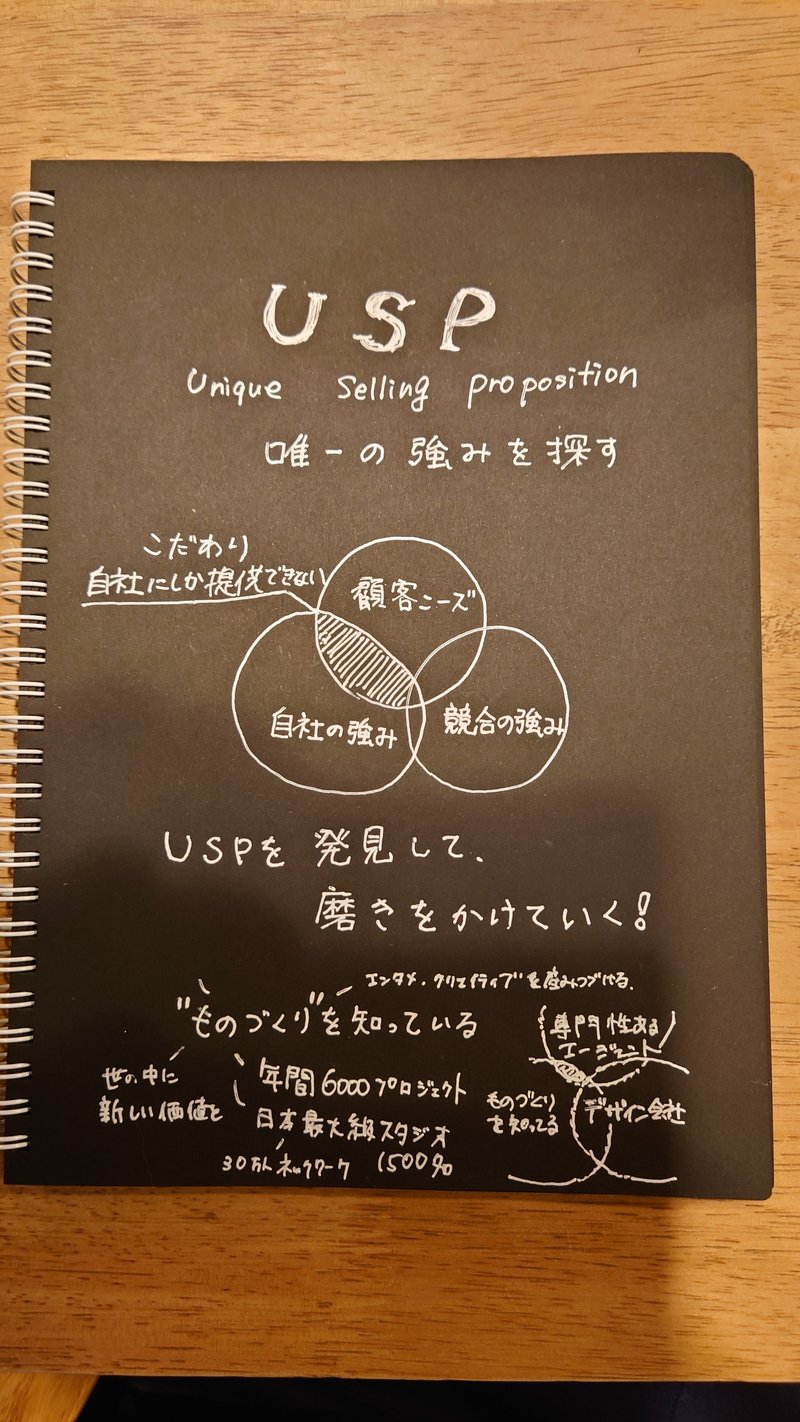 USP
Unique Selling proposition
唯一の強みを探す
こだわり
自社にしか提供できない
顧客ニーズ
自社の強み
競合の強み
USPを発見して、
磨きをかけていく!
エンタメ・クリエイティブを産みつづける.
"ものづくり"を知っている
世の中に
新しい価値を
年間6000プロジェクト
日本最大級スタジオ
30万人ネットワーク 1500名
専門性ある
エージェント
ものづくり
を知ってる
デザイン会社